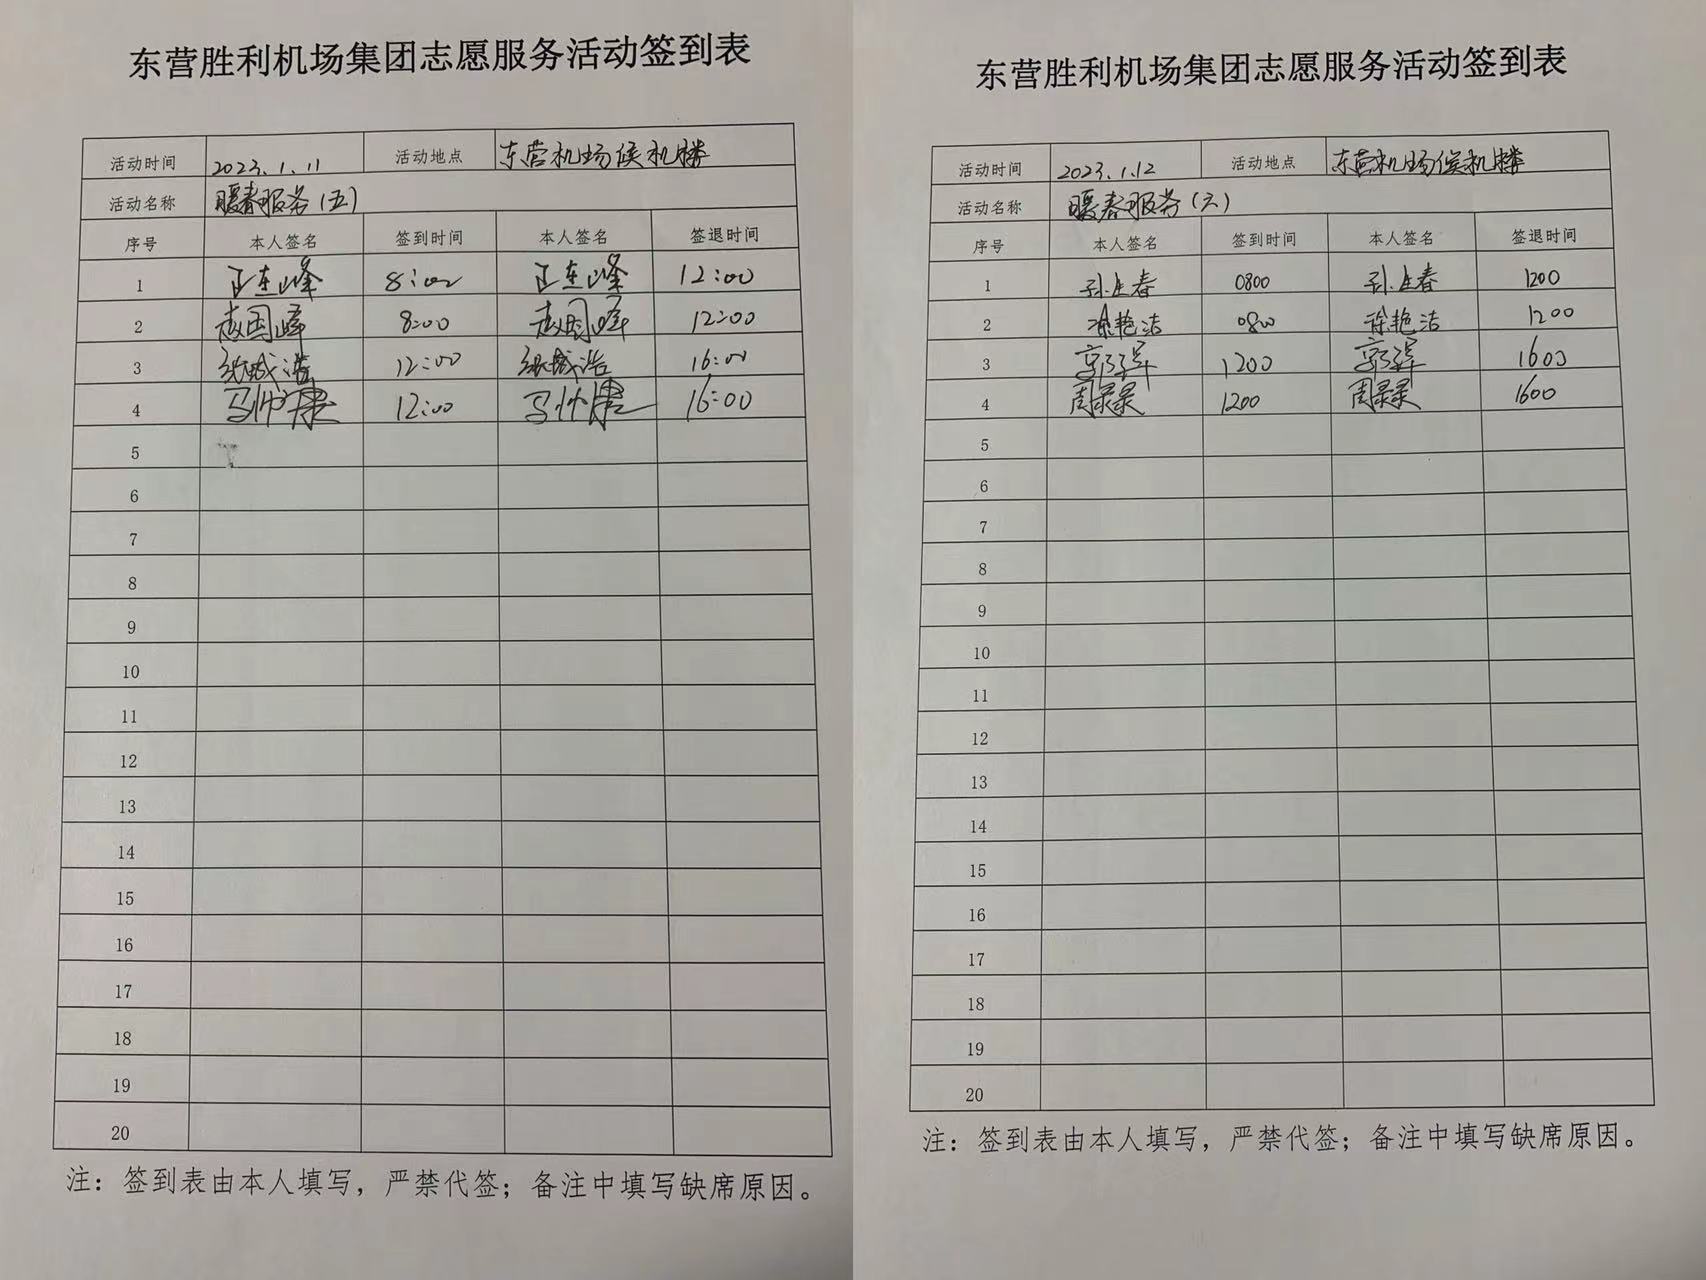 东营胜利机场集团志愿服务活动签到表
活动时间 2023.1.11 活动地点 东营机场候机楼
活动名称 暖春服务(五)
序号 本人签名 签到时间 本人签名 签退时间
1 8:00 12:00
2 赵国峰 8:00 赵国峰 12:00
3 张城浩 12:00 张城浩 16:00
4 马帅康 12:00 马帅康 16:00
5
6
7
8
9
10
11
12
13
14
15
16
17
18
19
20
注：签到表由本人填写，严禁代签；备注中填写缺席原因。
东营胜利机场集团志愿服务活动签到表
活动时间 2023.1.12 活动地点 东营机场候机楼
活动名称 暖春服务(六)
序号 本人签名 签到时间 本人签名 签退时间
1 0800 1200
2 徐艳洁 0800 徐艳洁 1200
3 1200 1600
4 周录录 1200 周录录 1600
5
6
7
8
9
10
11
12
13
14
15
16
17
18
19
20
注：签到表由本人填写，严禁代签；备注中填写缺席原因。